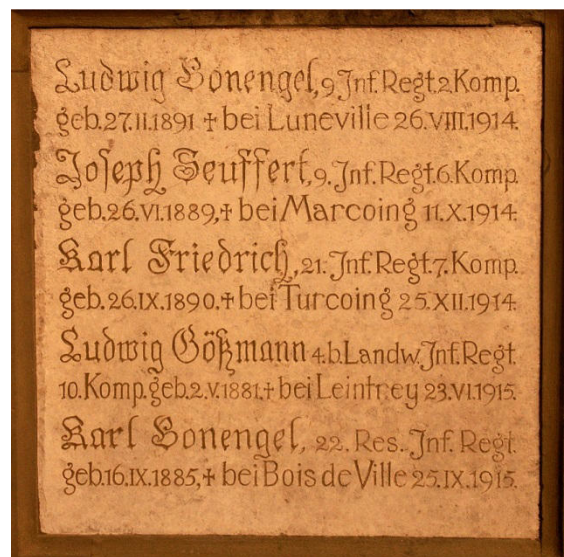 Ludwig Bonengel, 9. Inf. Regt. 2. Komp.
geb. 27.II.1891 + bei Luneville 26.VIII.1914.
Joseph Seuffert, 9. Inf. Regt. 6. Komp.
geb. 26.VI.1889, + bei Marcoing 11.X.1914.
Karl Friedrich, 21. Inf. Regt. 7. Komp.
geb. 26.IX.1890. + bei Turcoing 25.XII.1914.
Ludwig Gößmann 4. b. Landw. Inf. Regt.
10. Komp. geb. 2.V.1881. + bei Leintrey 23.VI.1915.
Karl Bonengel, 22. Res. Inf. Regt.
geb. 16.IX.1885, + bei Bois de Ville 25.IX.1915.